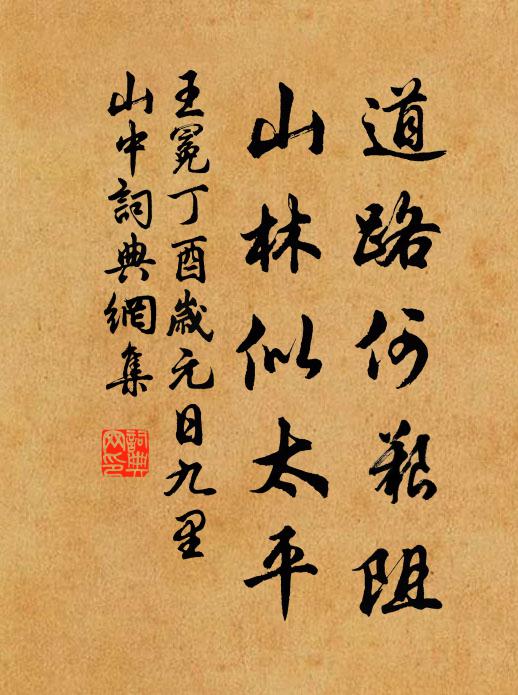 道路何艱阻
山林似太平
王冕丁酉歲元日九里
山中詞典網集
詞典网印